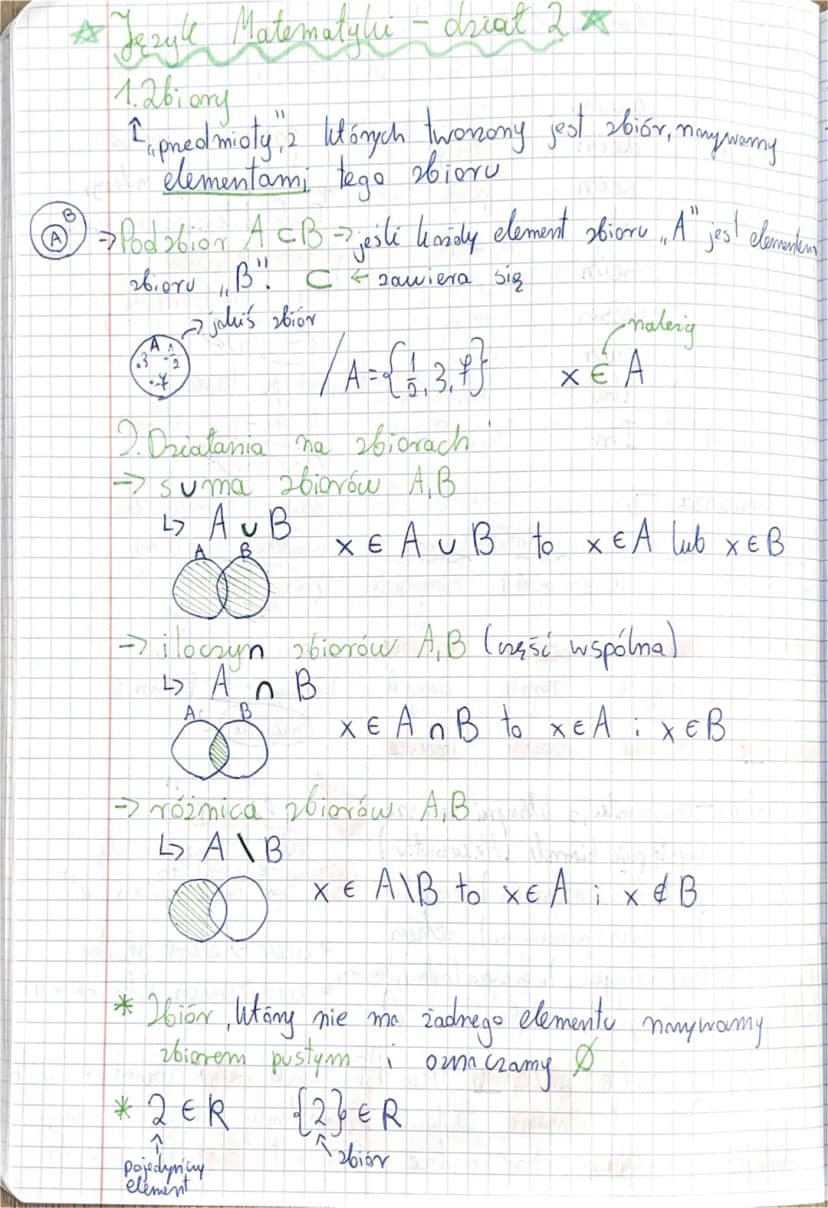 Język Matematyki - dział 2
1. Zbiory
↑ „przedmioty", z których tworzony jest zbiór, nazywamy
elementami tego zbioru
B
A
→ Podzbiór A ⊂ B → jeśli każdy element zbioru „A" jest elementem
zbioru „B". ⊂ ← zawiera się
→ jakiś zbiór
A
.3 .1/2
.7
/ A = {1/2, 3, 7} x ∈ A
należy
2. Działania na zbiorach
→ suma zbiorów A,B
↳ A ∪ B
A B
x ∈ A ∪ B to x ∈ A lub x ∈ B
→ iloczyn zbiorów A,B (część wspólna)
↳ A ∩ B
A B
x ∈ A ∩ B to x ∈ A i x ∈ B
→ różnica zbiorów A,B
↳ A \ B
x ∈ A\B to x ∈ A i x ∉ B
* Zbiór, który nie ma żadnego elementu nazywamy
zbiorem pustym i oznaczamy Ø
* 2 ∈ R {2} ∈ R
↑ pojedynczy element
↖ zbiór